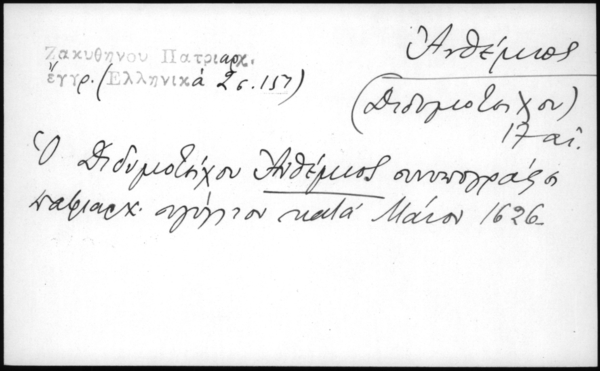 Ζακυθηνου Πατριαρχ.
ἔγγρ. (Ἑλληνικά 2 σ. 157)
Ἄνθεμιος
(Διδυμοτείχου)
17 αἰ.
Ὁ Διδυμοτείχου Ἄνθεμιος συνυπογράφει
πατριαρχ. σιγίλλιον κατά Μάιον 1626.